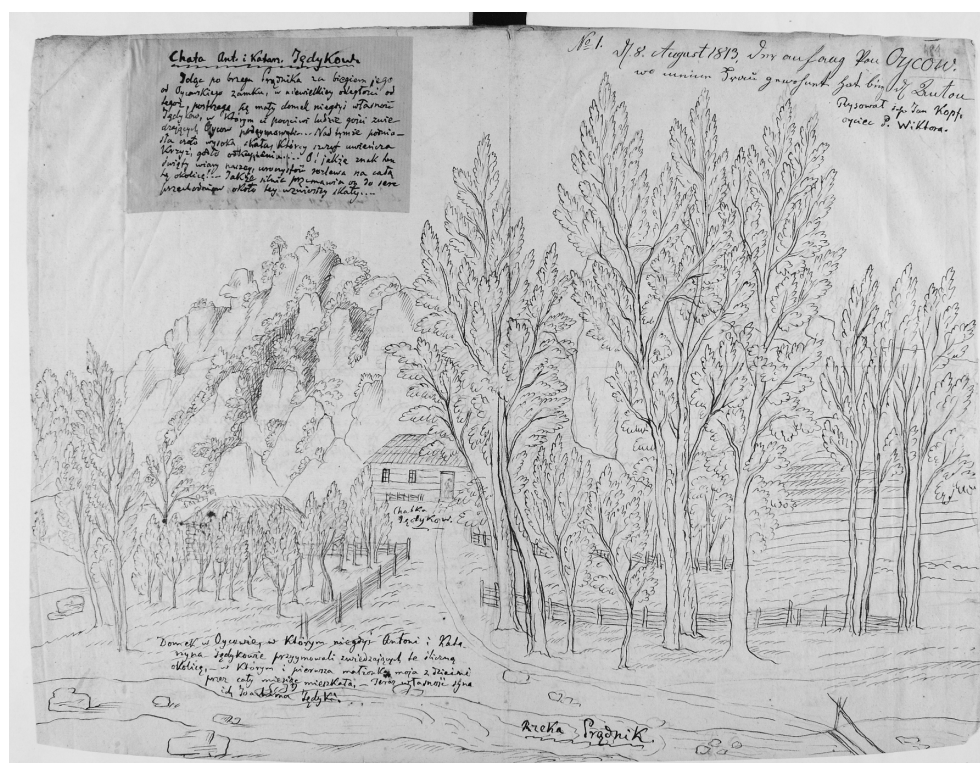 Chata Ant. i Katarz. Jędyków.
Idąc po brzegu Prądnika za biegiem jego
od Oycowskiego zamku, w niewielkiej odległości od
tegoż, postrzega się mały domek niegdyś własność
Jędyków, w którym ci poczciwi ludzie gości zwie-
dzających Oyców podeymowali... Nad tymże podnio-
sła czoło wysoka skała, której szczyt uwieńcza
Krzyż, godło odkupienia... O! jakże znak ten
święty wiary naszey, uroczystość rozlewa na całą
tę okolicę!... Jakże silnie przemawia on do serc
przechodniów około tey wzniosłey skały....
No 1. 8. August 1873, Der anfang Von Oyców.
wo meine Frau gewohnt hat bey Anton
Rysował ś.p. Jan Kopf,
oyciec P. Wiktora.
Chatka
Jędyków.
Domek w Oycowie, w którym niegdyś Antoni i Kata-
rzyna Jędykowie przyymowali zwiedzających te śliczną
okolicę, w którym i pierwsza małżonka moja z dziećmi
przez cały miesiąc mieszkała, - Teraz własność syna
ich Jędyka.
Rzeka Prądnik.